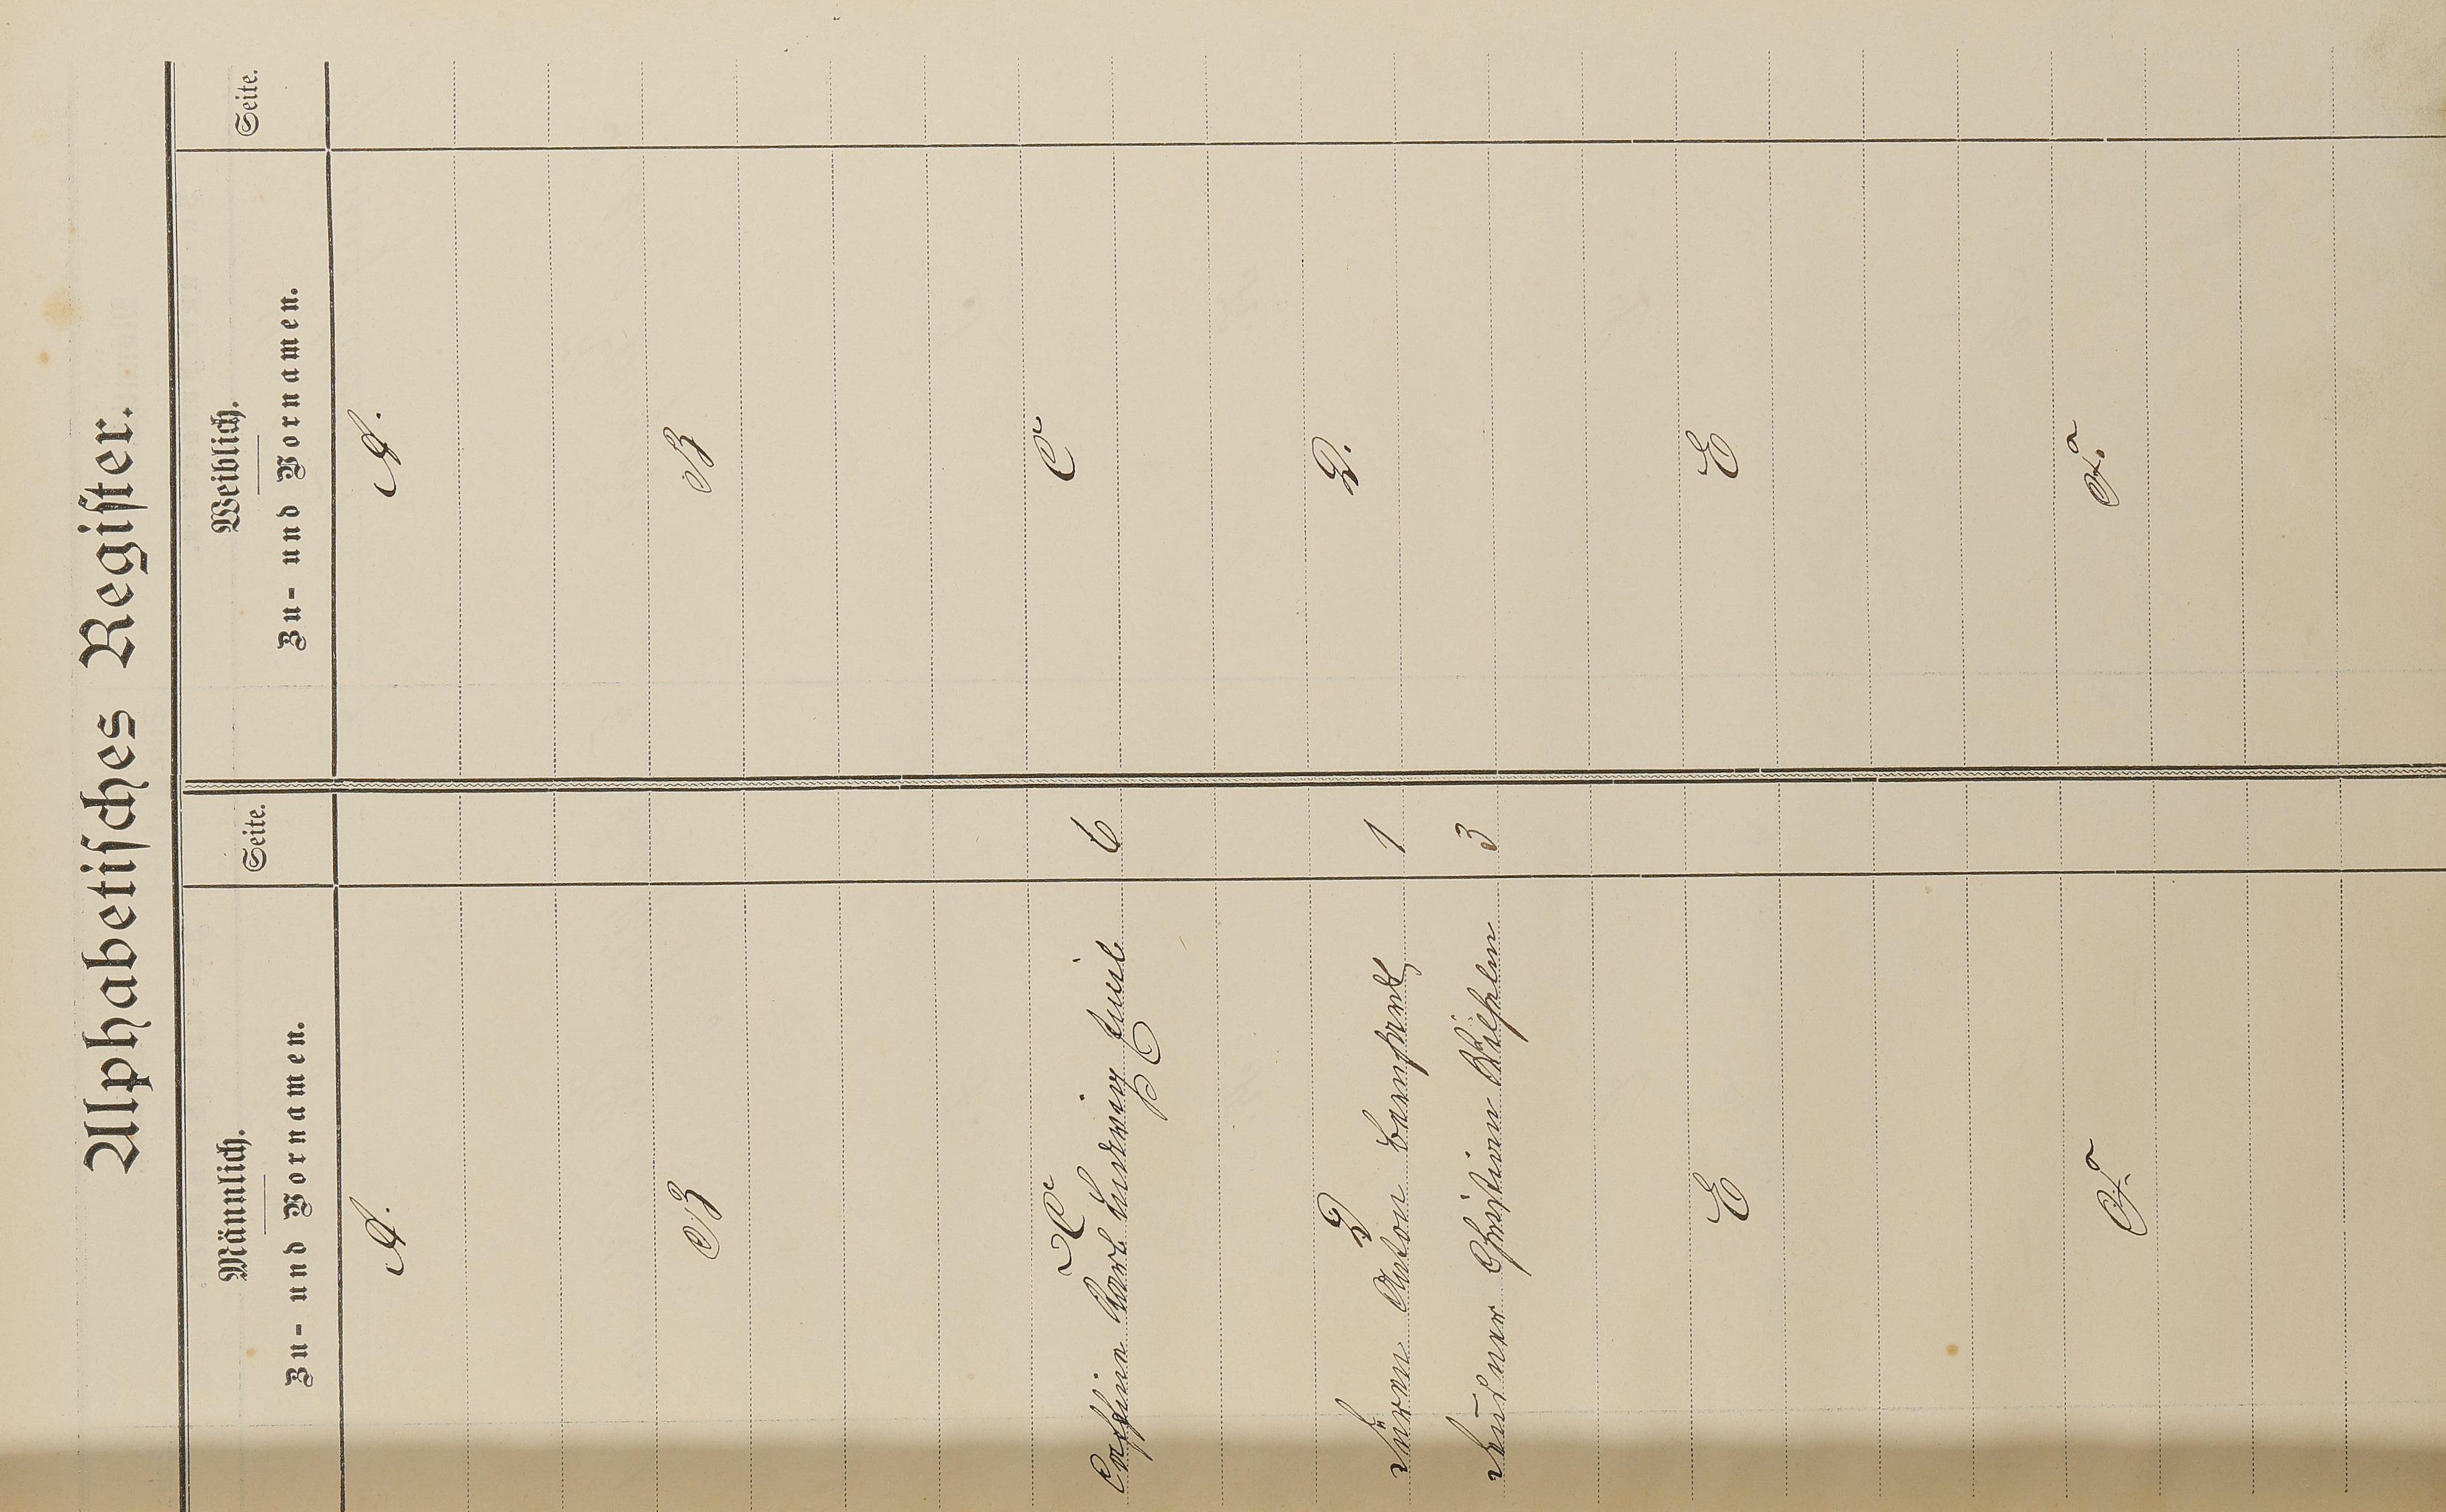 Alphabetisches Register.
Männlich.
Zu- und Vornamen.
Seite.
Weiblich.
Zu- und Vornamen.
Seite.
A.
A.
B
B
C
C
Carl Ludwig Emil 6
D
D.
Düren Anton Bernhard 1
Christian Wilhelm 3
E
E
F
F.